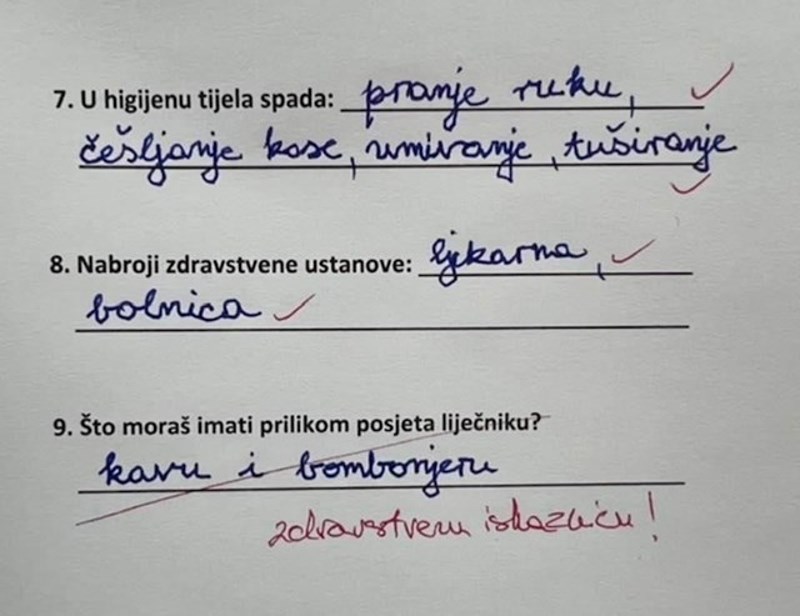 7. U higijenu tijela spada: pranje ruku,
češljanje kose, umivanje, tuširanje
8. Nabroji zdravstvene ustanove: ljekarna,
bolnica
9. Što moraš imati prilikom posjeta liječniku?
kavu i bombonjeru
zdravstvenu iskaznicu!